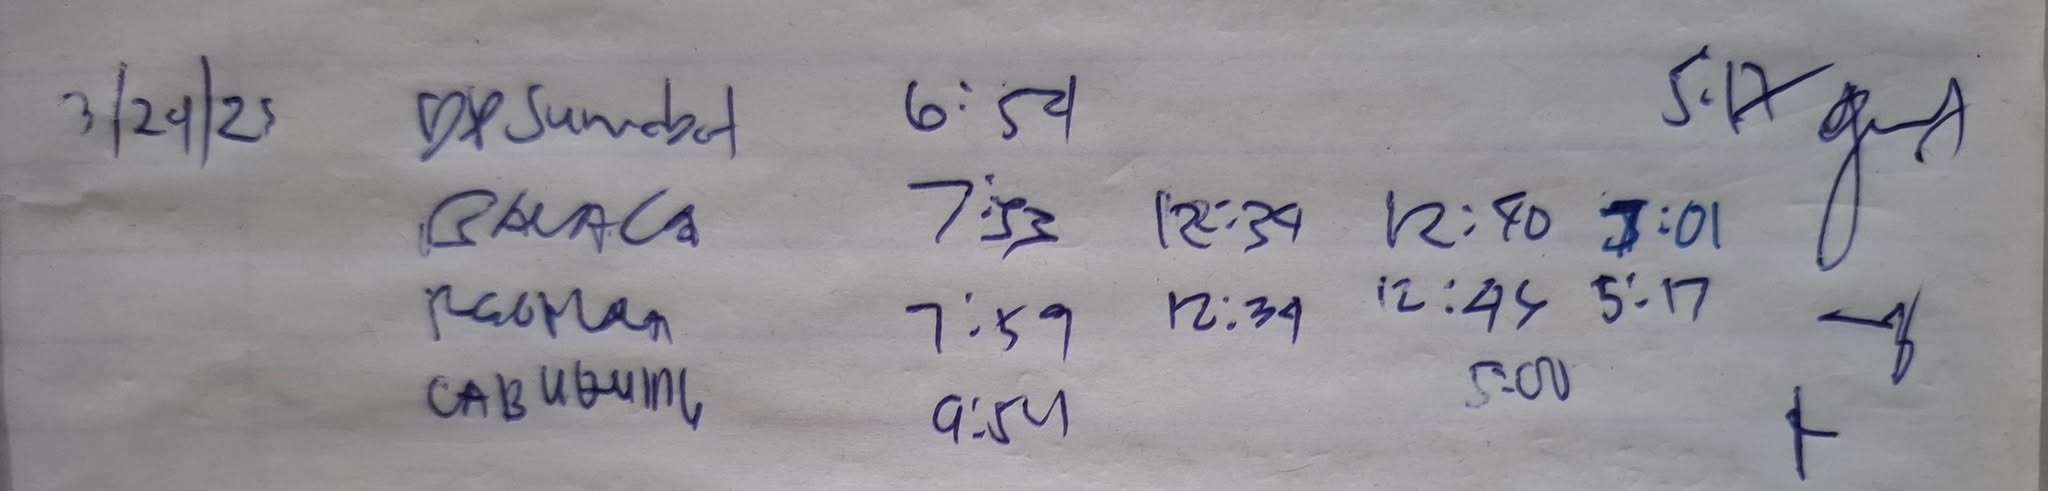 3/24/25 DPSumabat 6:54 5:17
BALACA 7:53 12:34 12:40 5:01
7:59 12:34 12:45 5:17
9:54 5:00